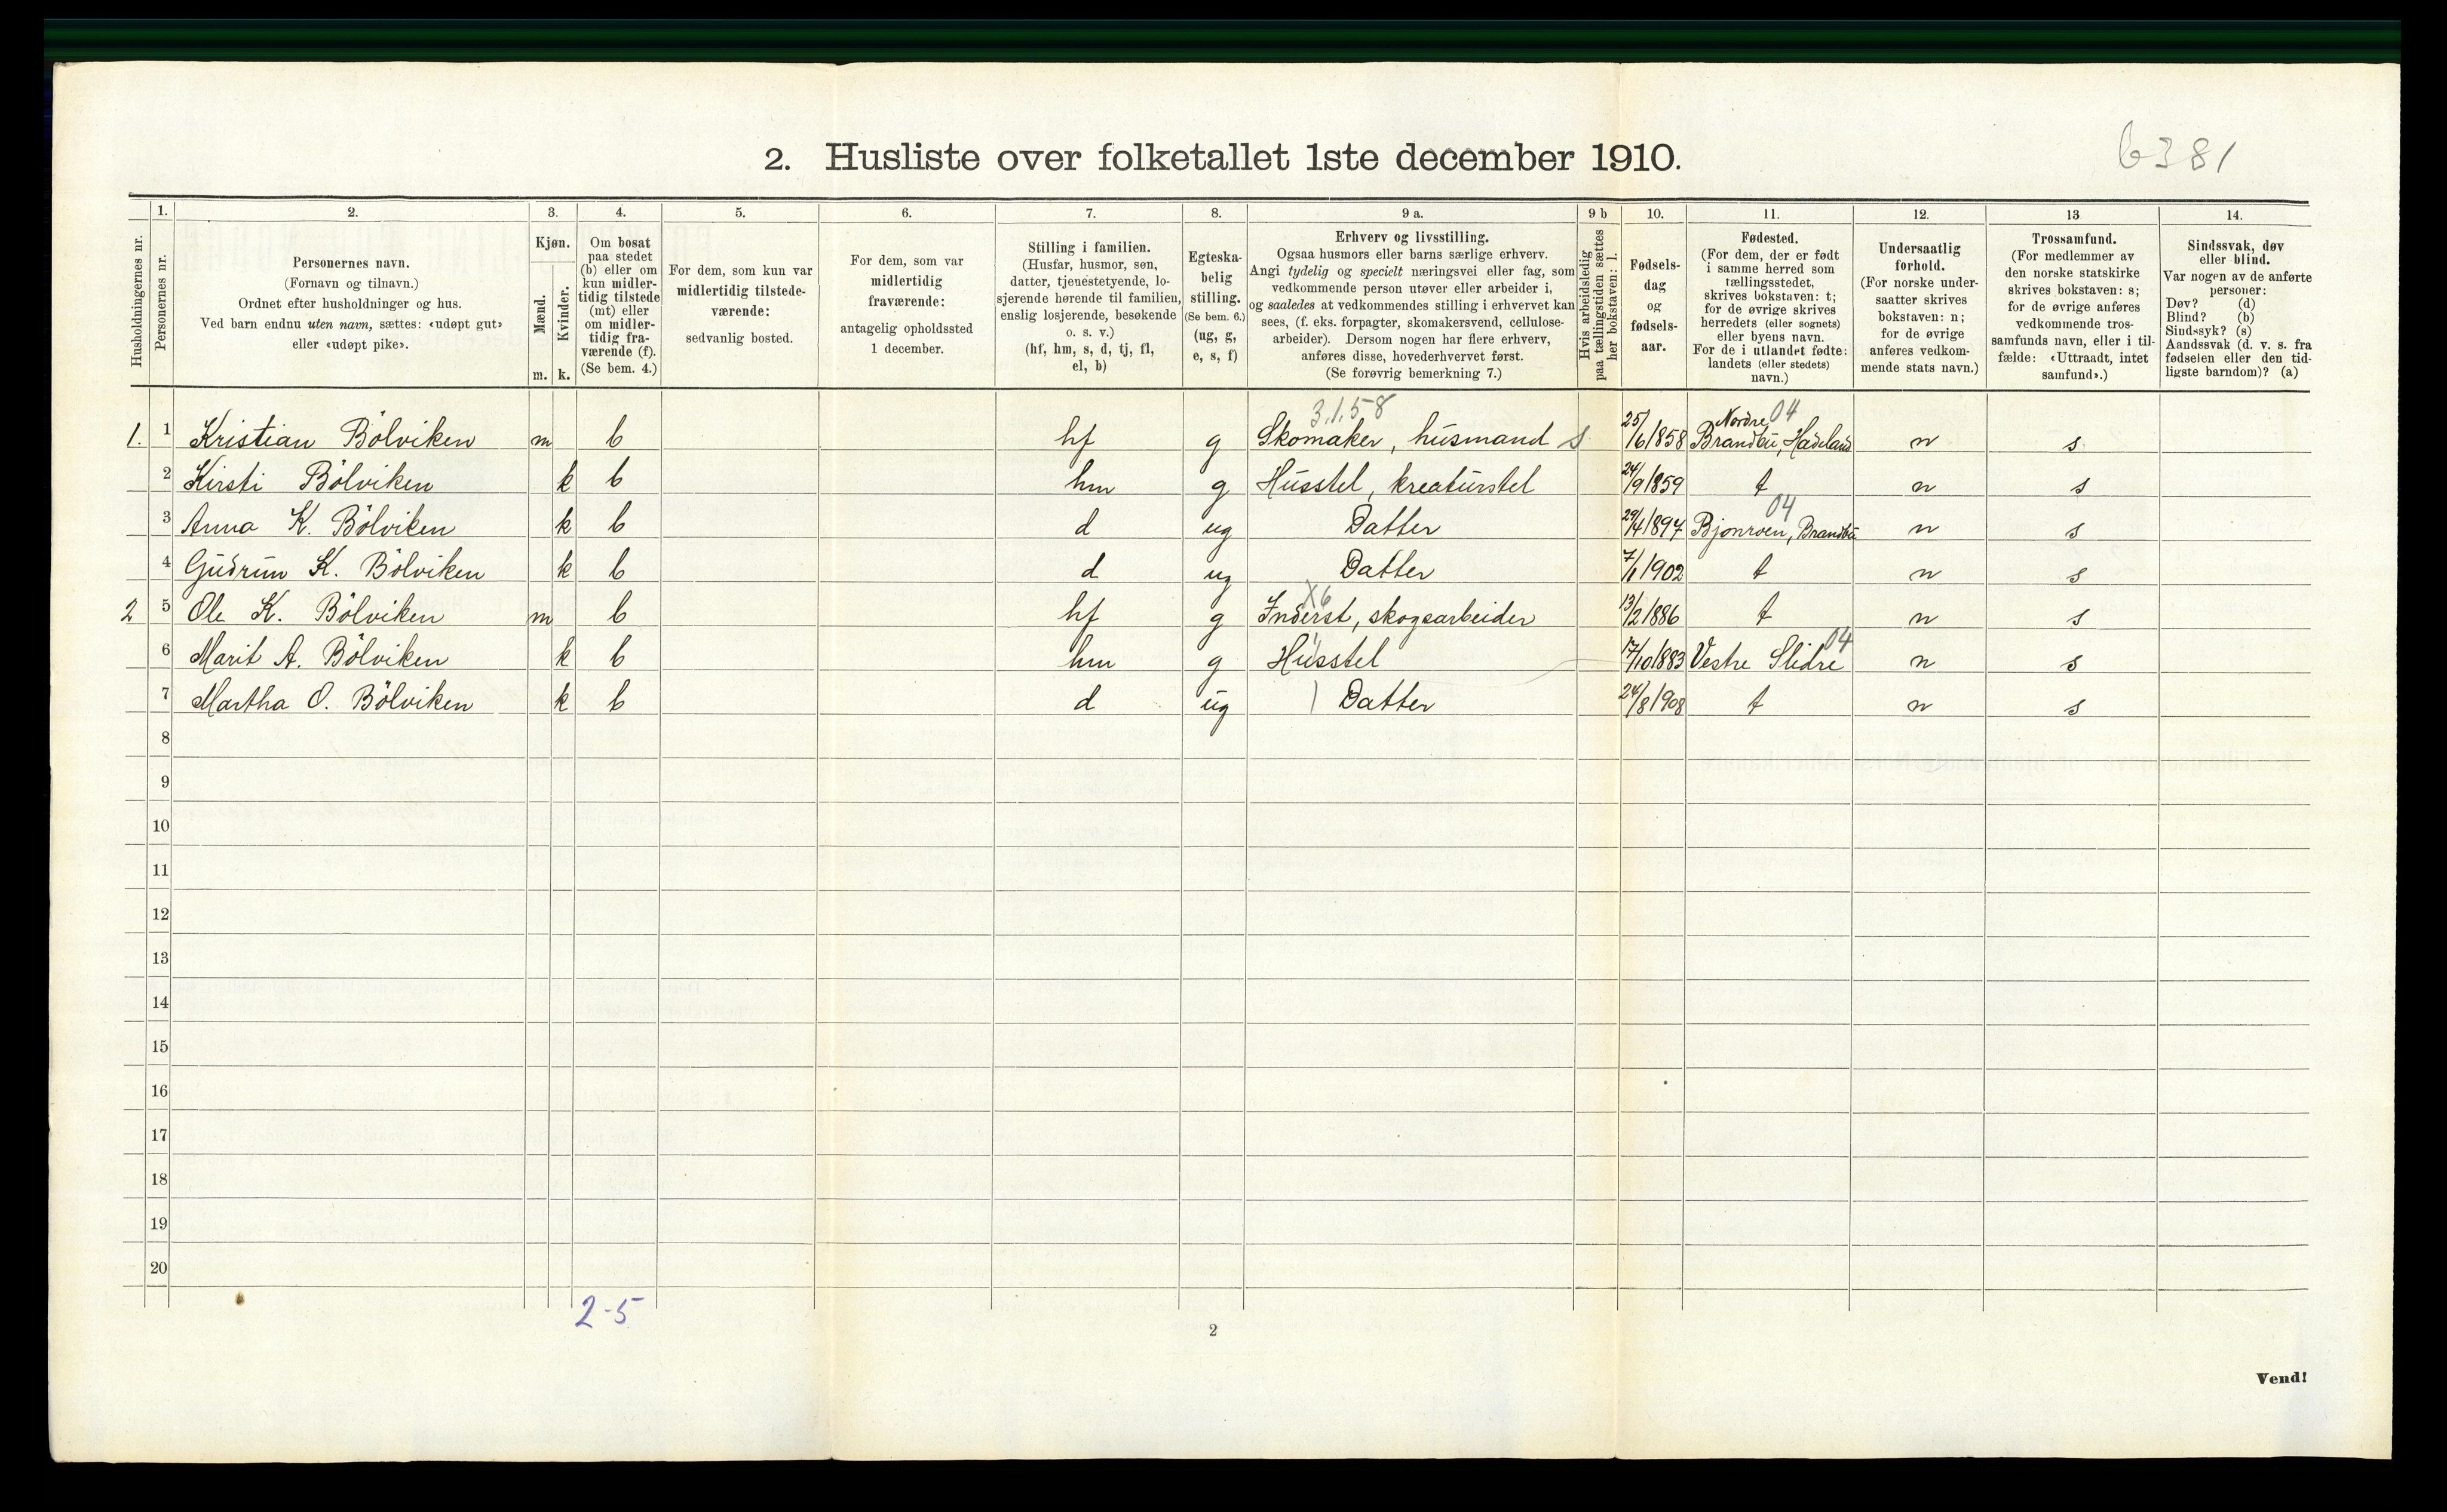 6381
2. Husliste over folketallet 1ste december 1910.
Husholdningernes nr.
1.
Personernes nr.
2.
Personernes navn.
(Fornavn og tilnavn.)
Ordnet efter husholdninger og hus.
Ved barn endnu uten navn, sættes: «udøpt gut»
eller «udøpt pike».
3.
Kjøn.
Mænd.
Kvinder.
m. k.
4.
Om bosat
paa stedet
(b) eller om
kun midler-
tidig tilstede
(mt) eller
om midler-
tidig fra-
værende (f).
(Se bem. 4.)
5.
For dem, som kun var
midlertidig tilstede-
værende:
sedvanlig bosted.
6.
For dem, som var
midlertidig
fraværende:
antagelig opholdssted
1 december.
7.
Stilling i familien.
(Husfar, husmor, søn,
datter, tjenestetyende, lo-
sjerende hørende til familien,
enslig losjerende, besøkende
o. s. v.)
(hf, hm, s, d, tj, fl,
el, b)
8.
Egteska-
belig
stilling.
(Se bem. 6.)
(ug, g,
e, s, f)
9 a.
Erhverv og livsstilling.
Ogsaa husmors eller barns særlige erhverv.
Angi tydelig og specielt næringsvei eller fag, som
vedkommende person utøver eller arbeider i,
og saaledes at vedkommendes stilling i erhvervet kan
sees, (f. eks. forpagter, skomakersvend, cellulose-
arbeider). Dersom nogen har flere erhverv,
anføres disse, hovederhvervet først.
(Se forøvrig bemerkning 7.)
9 b
Hvis arbeidsledig
paa tællingstiden sættes
her bokstaven: l.
10.
Fødsels-
dag
og
fødsels-
aar.
11.
Fødested.
(For dem, der er født
i samme herred som
tællingsstedet,
skrives bokstaven: t;
for de øvrige skrives
herredets (eller sognets)
eller byens navn.
For de i utlandet fødte:
landets (eller stedets)
navn.)
12.
Undersaatlig
forhold.
(For norske under-
saatter skrives
bokstaven: n;
for de øvrige
anføres vedkom-
mende stats navn.)
13
Trossamfund.
(For medlemmer av
den norske statskirke
skrives bokstaven: s;
for de øvrige anføres
vedkommende tros-
samfunds navn, eller i til-
fælde: «Uttraadt, intet
samfund».)
14.
Sindssvak, døv
eller blind.
Var nogen av de anførte
personer:
Døv? (d)
Blind? (b)
Sindssyk? (s)
Aandssvak (d. v. s. fra
fødselen eller den tid-
ligste barndom)? (a)
3.1.58 Nordre 04
1. 1 Kristian Bölviken m b hf g Skomaker, husmand s 25/6 1858 Brandbu, Hadeland n s
2 Kirsti Bölviken k b hm g Husstel, kreaturstel 24/9 1859 t n s
04
3 Anna K. Bölviken k b d ug Datter 29/4 1897 Bjonroen, Brandbu n s
4 Gudrun K. Bölviken k b d ug Datter 7/1 1902 t n s
X6
2 5 Ole K. Bölviken m b hf g Inderst, skogsarbeider 13/2 1886 t n s
04
6 Marit A. Bölviken k b hm g Husstel 17/10 1883 Vestre Slidre n s
7 Martha O. Bölviken k b d ug Datter 24/8 1908 t n s
8
9
10
11
12
13
14
15
16
17
18
19
20
2-5
2
Vend!